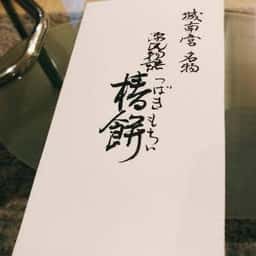 城南宮 名物
源氏物語
つばきもちい
椿餅